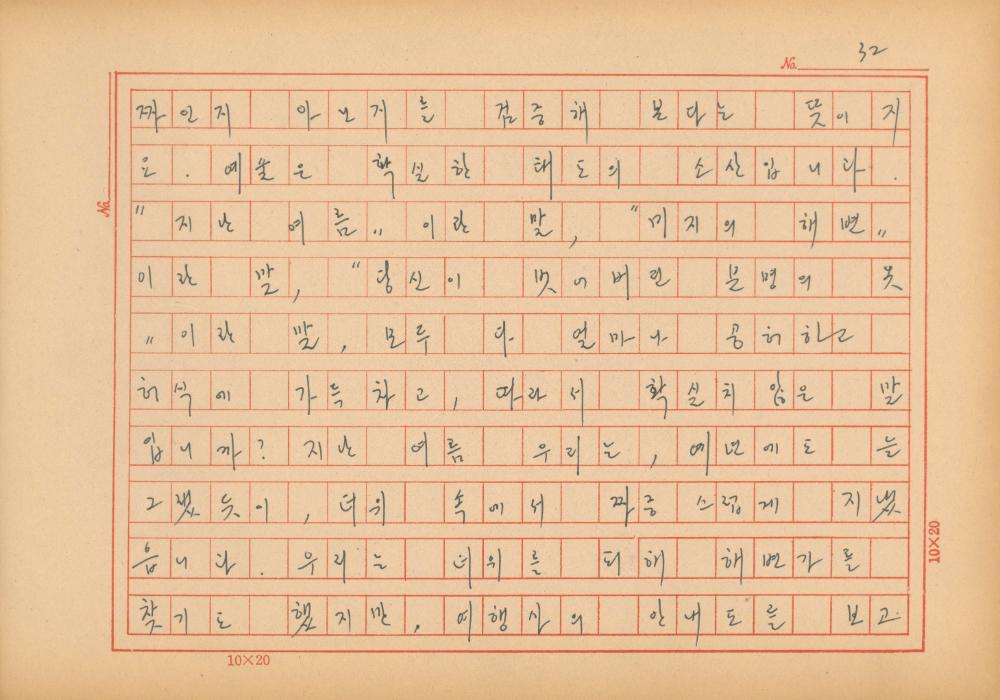 No. 32
짜인지 아닌지를 검증해 본다는 뜻이지
요. 예술은 확실한 태도의 소산입니다.
"지난 여름" 이란 말, "미지의 해변"
이란 말, "당신이 벗어버린 문명의 옷
"이란 말, 모두 다 얼마나 공허하고
허식에 가득차고, 따라서 확실치 않은 말
입니까? 지난 여름 우리는, 예년에도 늘
그랬듯이, 더위 속에서 짜증스럽게 지냈
읍니다. 우리는 더위를 피해 해변가를
찾기도 했지만, 여행사의 안내도를 보고
No.
10×20
10×20